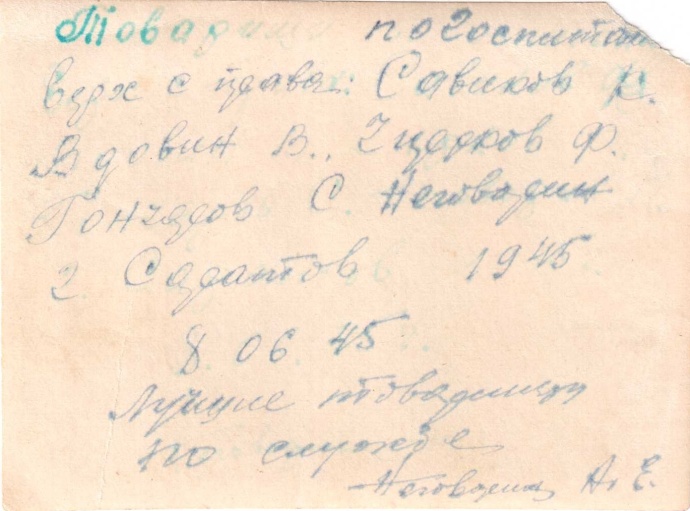 Товарищи по госпитал
верх с права: Савиков К.
Вдовин В., Ф.
Гончаров С. Неговорин
г. Саратов 1945
8. 06. 45
Лучшие товарищи
по службе
Неговорин А. Е.